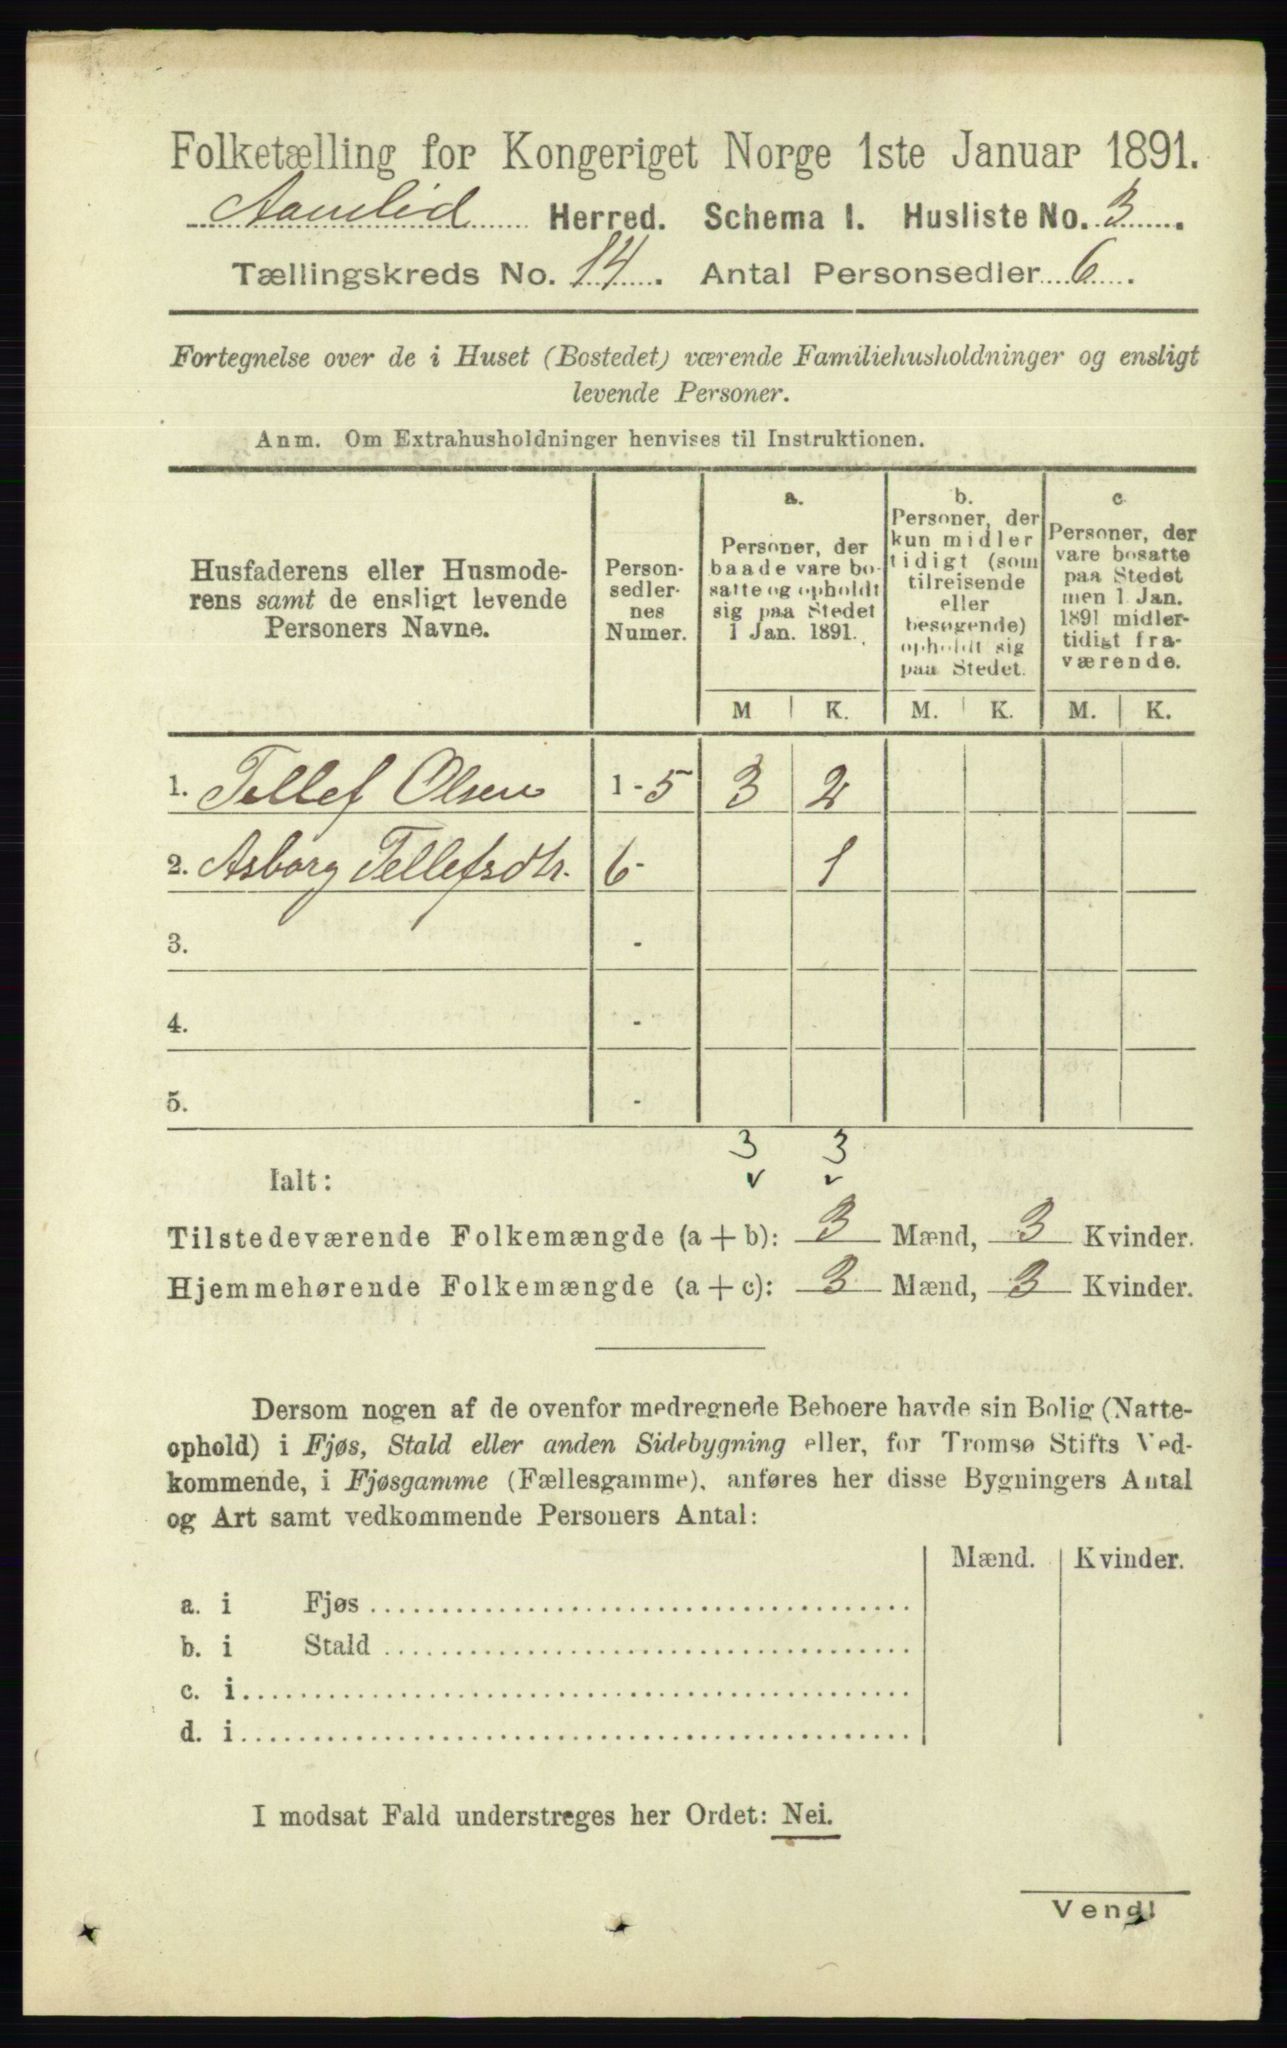 Folketælling for Kongeriget Norge 1ste Januar 1891.
Aamlid Herred. Schema I. Husliste No. 3
Tællingskreds No. 14. Antal Personsedler 6.
Fortegnelse over de i Huset (Bostedet) værende Familiehusholdninger og ensligt
levende Personer.
Anm. Om Extrahusholdninger henvises til Instruktionen.
Husfaderens eller Husmode-
rens samt de ensligt levende
Personers Navne.
Person-
sedler-
nes
Numer.
a.
Personer, der
baade vare bo-
satte og opholdt
sig paa Stedet
1 Jan. 1891.
b.
Personer, der
kun midler
tidigt (som
tilreisende
eller
besøgende)
opholdt sig
paa Stedet.
c
Personer, der
vare bosatte
paa Stedet
men 1 Jan.
1891 midler-
tidigt fra-
værende.
M K. M. K. M. K.
1. Tellef Olsen 1-5 3 2
2. Asborg Tellefsdtr. 6- 1
3. -
4. -
5. -
3 3
Ialt:
Tilstedeværende Folkemængde (a + b): 3 Mænd, 3 Kvinder.
Hjemmehørende Folkemængde (a + c): 3 Mænd, 3 Kvinder.
Dersom nogen af de ovenfor medregnede Beboere havde sin Bolig (Natte-
ophold) i Fjøs, Stald eller anden Sidebygning eller, for Tromsø Stifts Ved-
kommende, i Fjøsgamme (Fællesgamme), anføres her disse Bygningers Antal
og Art samt vedkommende Personers Antal:
Mænd. Kvinder.
a. i Fjøs
b. i Stald
c. i
d. i
I modsat Fald understreges her Ordet: Nei.
Vend!